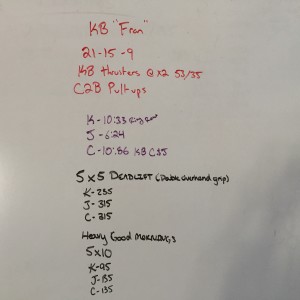 KB "Fran"
21-15-9
KB thrusters @ x2 53/35
C2B Pull-ups
K-10:33
J-6:24
C-10:56 KB C35
5x5 DEADLIFT (Double overhand grip)
K-235
J-315
C-315
Heavy Good MORNINGS
5x10
K-95
J-135
C-135